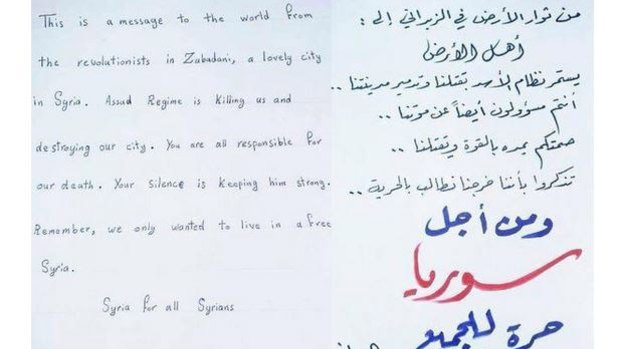 This is a message to the world from
the revolutionists in Zabadani, a lovely city
in Syria. Assad Regime is killing us and
destroying our city. You are all responsible for
our death. Your silence is keeping him strong.
Remember, we only wanted to live in a free
Syria.
Syria for all Syrians
من ثوار الأرض في الزبداني إلى :
أهل الأرض
يستمر نظام الأسد بقتلنا وتدمير مدينتنا ..
أنتم مسؤولون أيضاً عن موتنا ..
صمتكم يمده بالقوة ويقتلنا ..
تذكروا بأننا خرجنا نطالب بالحرية ..
ومن أجل
سوريا
حرة للجميع